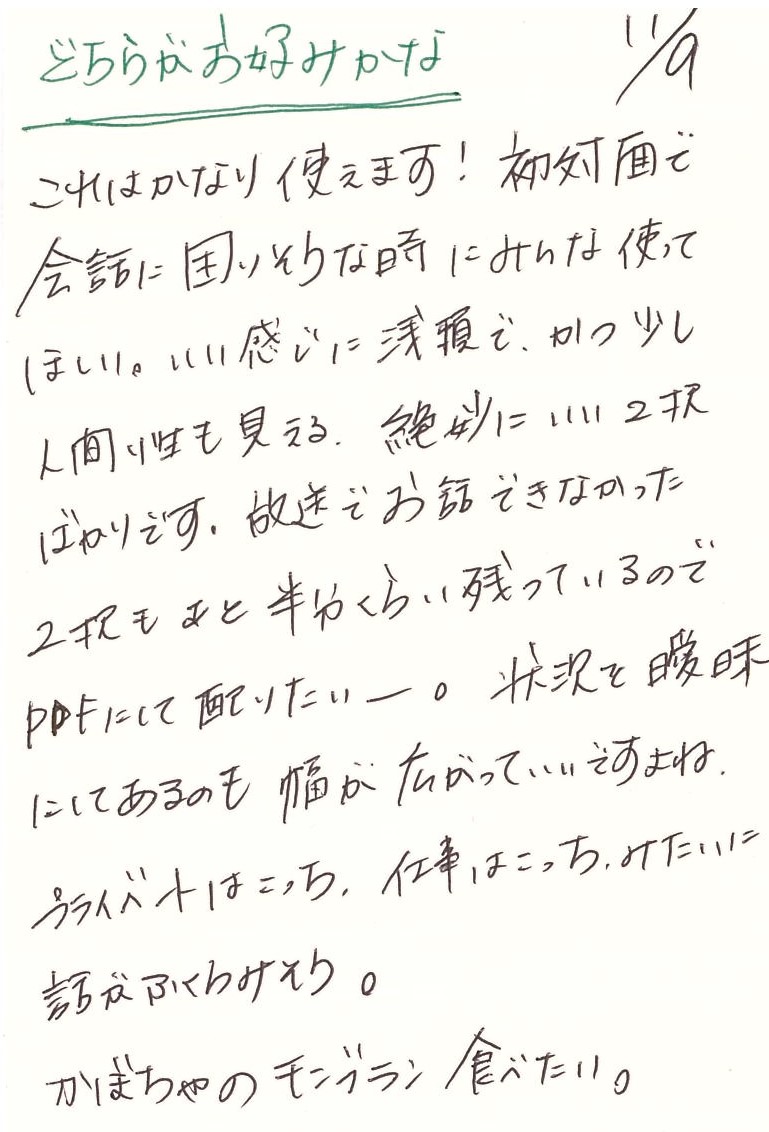 どちらがお好みかな 11/9
これはかなり使えます！初対面で
会話に困りそうな時にみんな使って
ほしい。いい感じに浅瀬で、かつ少し
人間性も見える、絶妙にいい2択
ばかりです。放送でお話できなかった
2択もあと半分くらい残っているので
PDFにして配りたいー。状況を曖昧
にしてあるのも幅が広がっていいですよね。
プライベートはこっち、仕事はこっち、みたいに
話がふくらみそう。
かぼちゃのモンブラン食べたい。